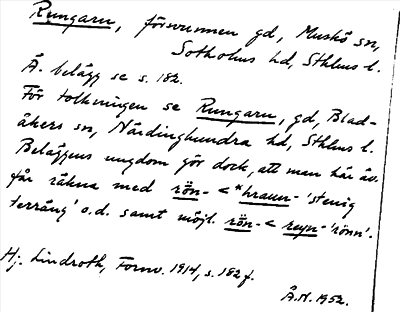 Rungarn, försvunnen gd, Muskö sn,
Sotholms hd, Sthlms l.
Ä. belägg se s. 182.
För tolkningen se Rungarn, gd, Blad-
åkers sn, Närdinghundra hd, Sthlms l.
Beläggens ungdom gör dock, att man här äv.
får räkna med rön- < *hraun- 'stenig
terräng' o.d. samt möjl. rön- < reyn- 'rönn'.
Hj. Lindroth, Fornv. 1914, s. 182 f.
Å.N. 1952.